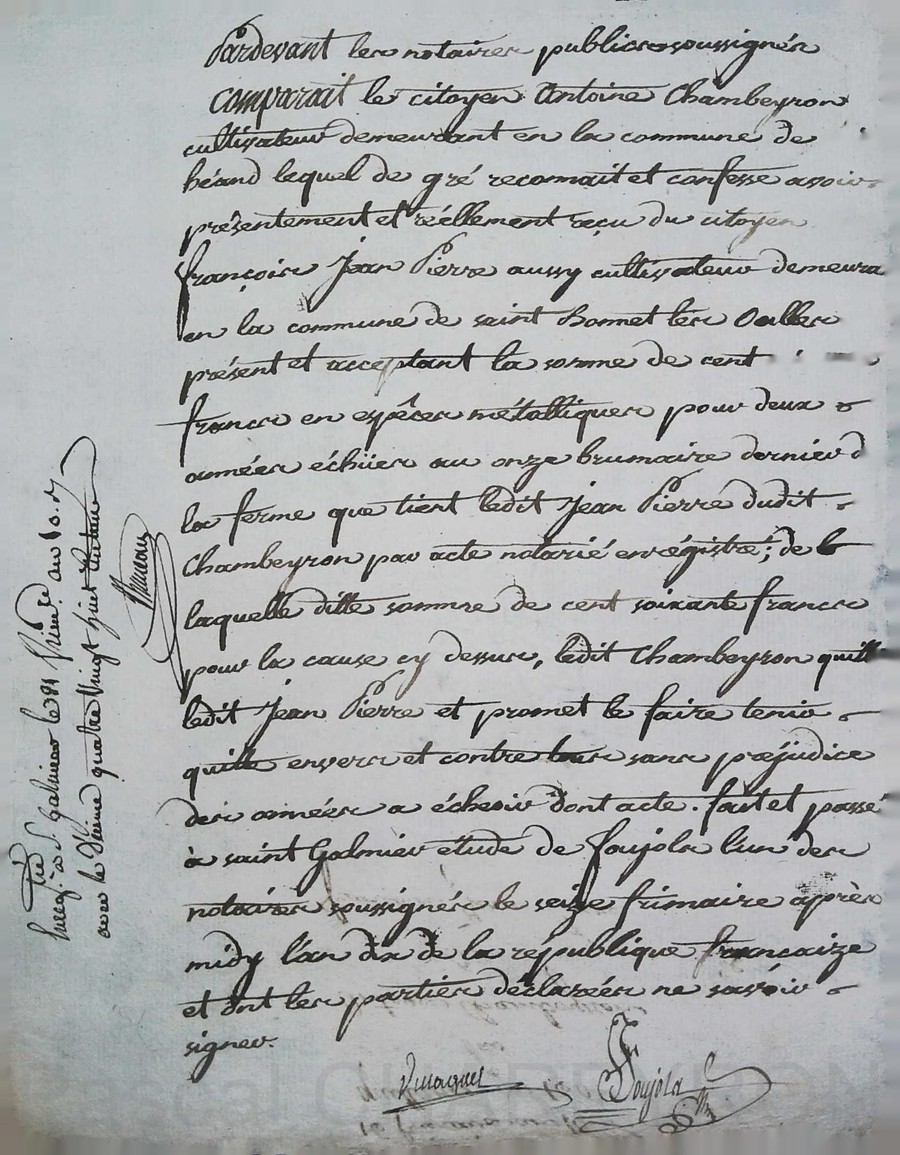 Pardevant les notaires publics soussignés
comparait le citoyen Antoine Chambeyron
cultivateur demeurant en la commune de
héand lequel de gré reconnait et confesse avoir
présentement et réellement reçu du citoyen
françois Jean Pierre aussy cultivateur demeura
en la commune de saint bonnet les Oulles
présent et acceptant la somme de cent
francs en espêces métalliques pour deux
années échües au onze brumaire dernier d
la ferme que tient ledit Jean Pierre dudit
Chambeyron par acte notarié enregistré; de
laquelle ditte somme de cent soixante francs
pour la cause cy dessus, ledit Chambeyron quitt
ledit Jean Pierre et promet le faire tenir
quitte envers et contre tous sans préjudice
des années a échoir dont acte. fait et passé
à saint Galmier étude de Foujols l'un des
notaires soussignés le seize frimaire après
midy l'an dix de la république françaize
et ont les parties déclarées ne savoir
signer.
Foujols
Enreg. tré à St. Galmier le 21 frim. re an 10. r
avec le Dixme quatre vingt huit